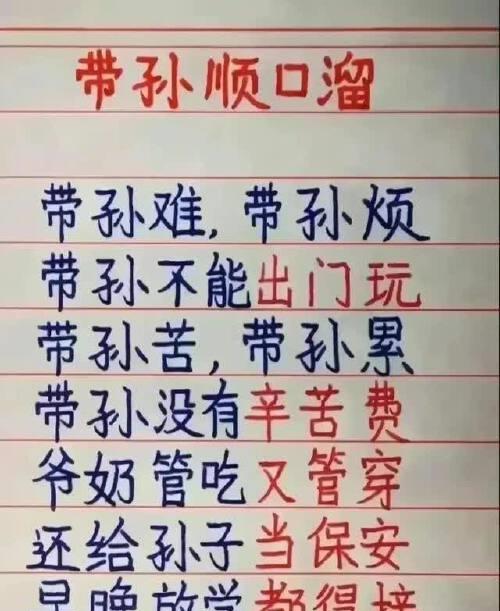 带孙顺口溜
带孙难, 带孙烦
带孙不能出门玩
带孙苦, 带孙累
带孙没有辛苦费
爷奶管吃又管穿
还给孙子当保安
早晚放学都得接